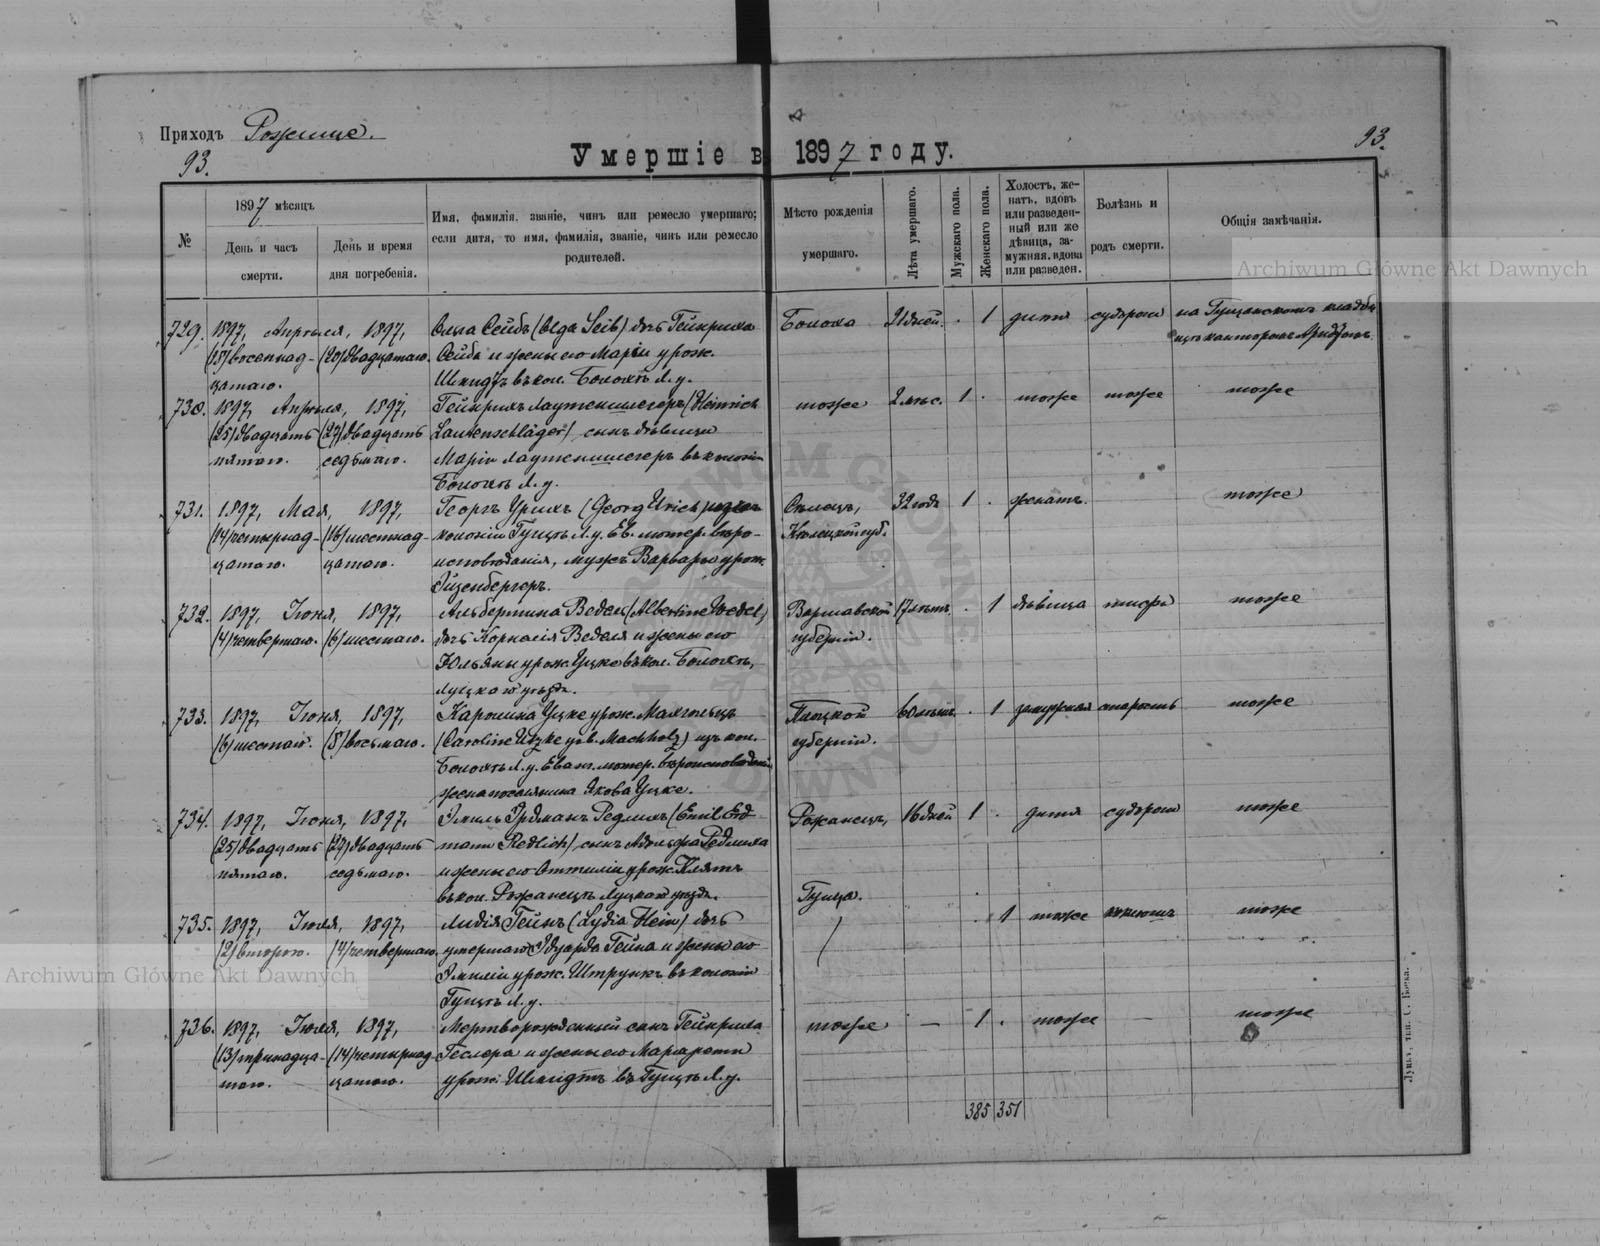 Приходъ Рожище.
93.
93.
Умершіе въ 1897 году.
№
1897 мѣсяцъ
День и часъ смерти.
День и время дня погребенія.
Имя, фамилія, званіе, чинъ или ремесло умершаго;
если дитя, то имя, фамилія, званіе, чинъ или ремесло
родителей.
Мѣсто рожденія
умершаго.
Лѣта умершаго.
Мужскаго пола.
Женскаго пола.
Холостъ, же-
натъ, вдовъ
или разведен-
ный или же
дѣвица, за-
мужняя, вдова
или разведен.
Болѣзнь и
родъ смерти.
Общія замѣчанія.
729. 1897, Апрѣля, 1897, Ольга Сейбъ (Olga Seib) дочь Гейнриха Болоха 21 дней. . 1 дитя судороги на Гущанскомъ кладби
(18) восемнад- (20) двадцатаго. Сейбъ и жены его Маріи урож.
цатаго. Шмидтъ въ кол. Болохѣ Л. у.
730. 1897, Апрѣля, 1897, Гейнрихъ Лаутеншлегеръ (Heinrich тоже 2 мѣс. 1 . тоже тоже тоже
(25) двадцать (27) двадцать Lautenschläger) сынъ дѣвицы
пятаго. седьмаго. Маріи Лаутеншлегеръ въ колоніи
Болохѣ Л. у.
731. 1897, Мая, 1897, Георгъ Урихъ (Georg Urich) 32 года 1 . женатъ. тоже
(14) четырнад- (16) шестнад- колоніи Гущѣ Л. у. Ев. лютер. вѣро- Кѣлецкой губ.
цатаго. цатаго. исповѣданія, мужъ Варвары урож.
Эйзенбергеръ.
732. 1897, Іюня, 1897, Альбертина Ведель (Albertine Wedel) Варшавской 17 лѣтъ. . 1 дѣвица тифъ тоже
(4) четвертаго. (6) шестаго. дочь Корнелія Веделя и жены его губерніи.
Юльяны урож. Уцке въ кол. Болохѣ,
Луцкаго уѣзда.
733. 1897, Іюня, 1897, Каролина Уцке урож. Махгольцъ Плоцкой 60 лѣтъ. . 1 замужняя старость тоже
(6) шестаго. (8) восьмаго. (Caroline Utzke geb. Machholz) изъ кол. губерніи.
Болохѣ Л. у. Еванг. лютер. вѣроисповѣданія
жена поселянина Якова Уцке.
734. 1897, Іюня, 1897, Эмиль Эрдманъ Редлихъ (Emil Erd Рожанецъ, 16 дней 1 . дитя судороги тоже
(25) двадцать (27) двадцать mann Redlich) сынъ Адольфа Редлиха
пятаго. седьмаго. и жены его Оттиліи урож. Клятъ
въ кол. Рожанецъ Луцкаго уѣзда.
735. 1897, Іюля, 1897, Лидія Гейнъ (Lydia Hein) дочь Гуща. . 1 тоже коклюшъ тоже
(2) втораго. (4) четвертаго. умершаго Эдуарда Гейна и жены его
Эмиліи урож. Штрункъ въ колоніи
Гущѣ Л. у.
736. 1897, Іюля, 1897, Мертворожденный сынъ Гейнриха тоже — 1 . тоже — тоже
(13) тринадца- (14) четырнад- Геслера и жены его Маргареты
таго. цатаго. урож. Шмидтъ въ Гущѣ Л. у.
385 351
Луцкъ, тип.
Archiwum Główne Akt Dawnych
Archiwum Główne Akt Dawnych